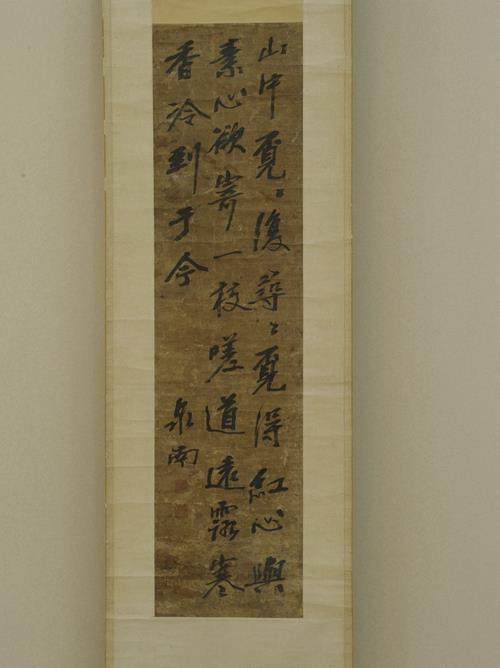 山中覓〻復尋〻覓得紅心與
素心欲寄一枝嗟道遠露寒
香冷到于今
泉南